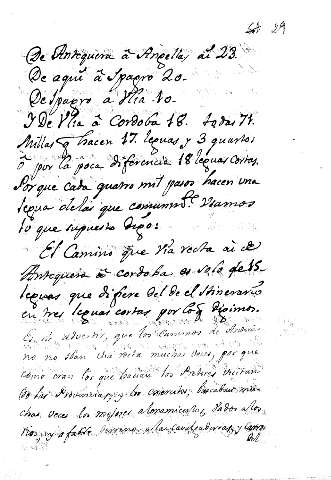 29
De Antequera â Angellas ai 23.
De aqui â Ipagro 20.
De Ipagro a Vlia 10.
Y De Vlia â Cordoba 18. todas 71.
Millas q̃ hacen 17. leguas y 3 quartos
ô por la poca diferencia 18 leguas cortas.
Porque cada quatro mil pasos hacen una
legua de las que comunm.te Vsamos
lo que supuesto digo:
El Camino que Via recta ai de
Antequera â cordoba es solo de 15
leguas que difiere del de el Itinerario
en tres leguas cortas por lo q̃ digimos.
Es de advertir, que los caminos de Antoni-
no no iban via recta muchas veces, por que
como eran los que hacian los Pretores visitan-
do las Provincias, y los exercitos, buscaban mu-
chas veces los mejores alojamientos, vados a los
rios, y